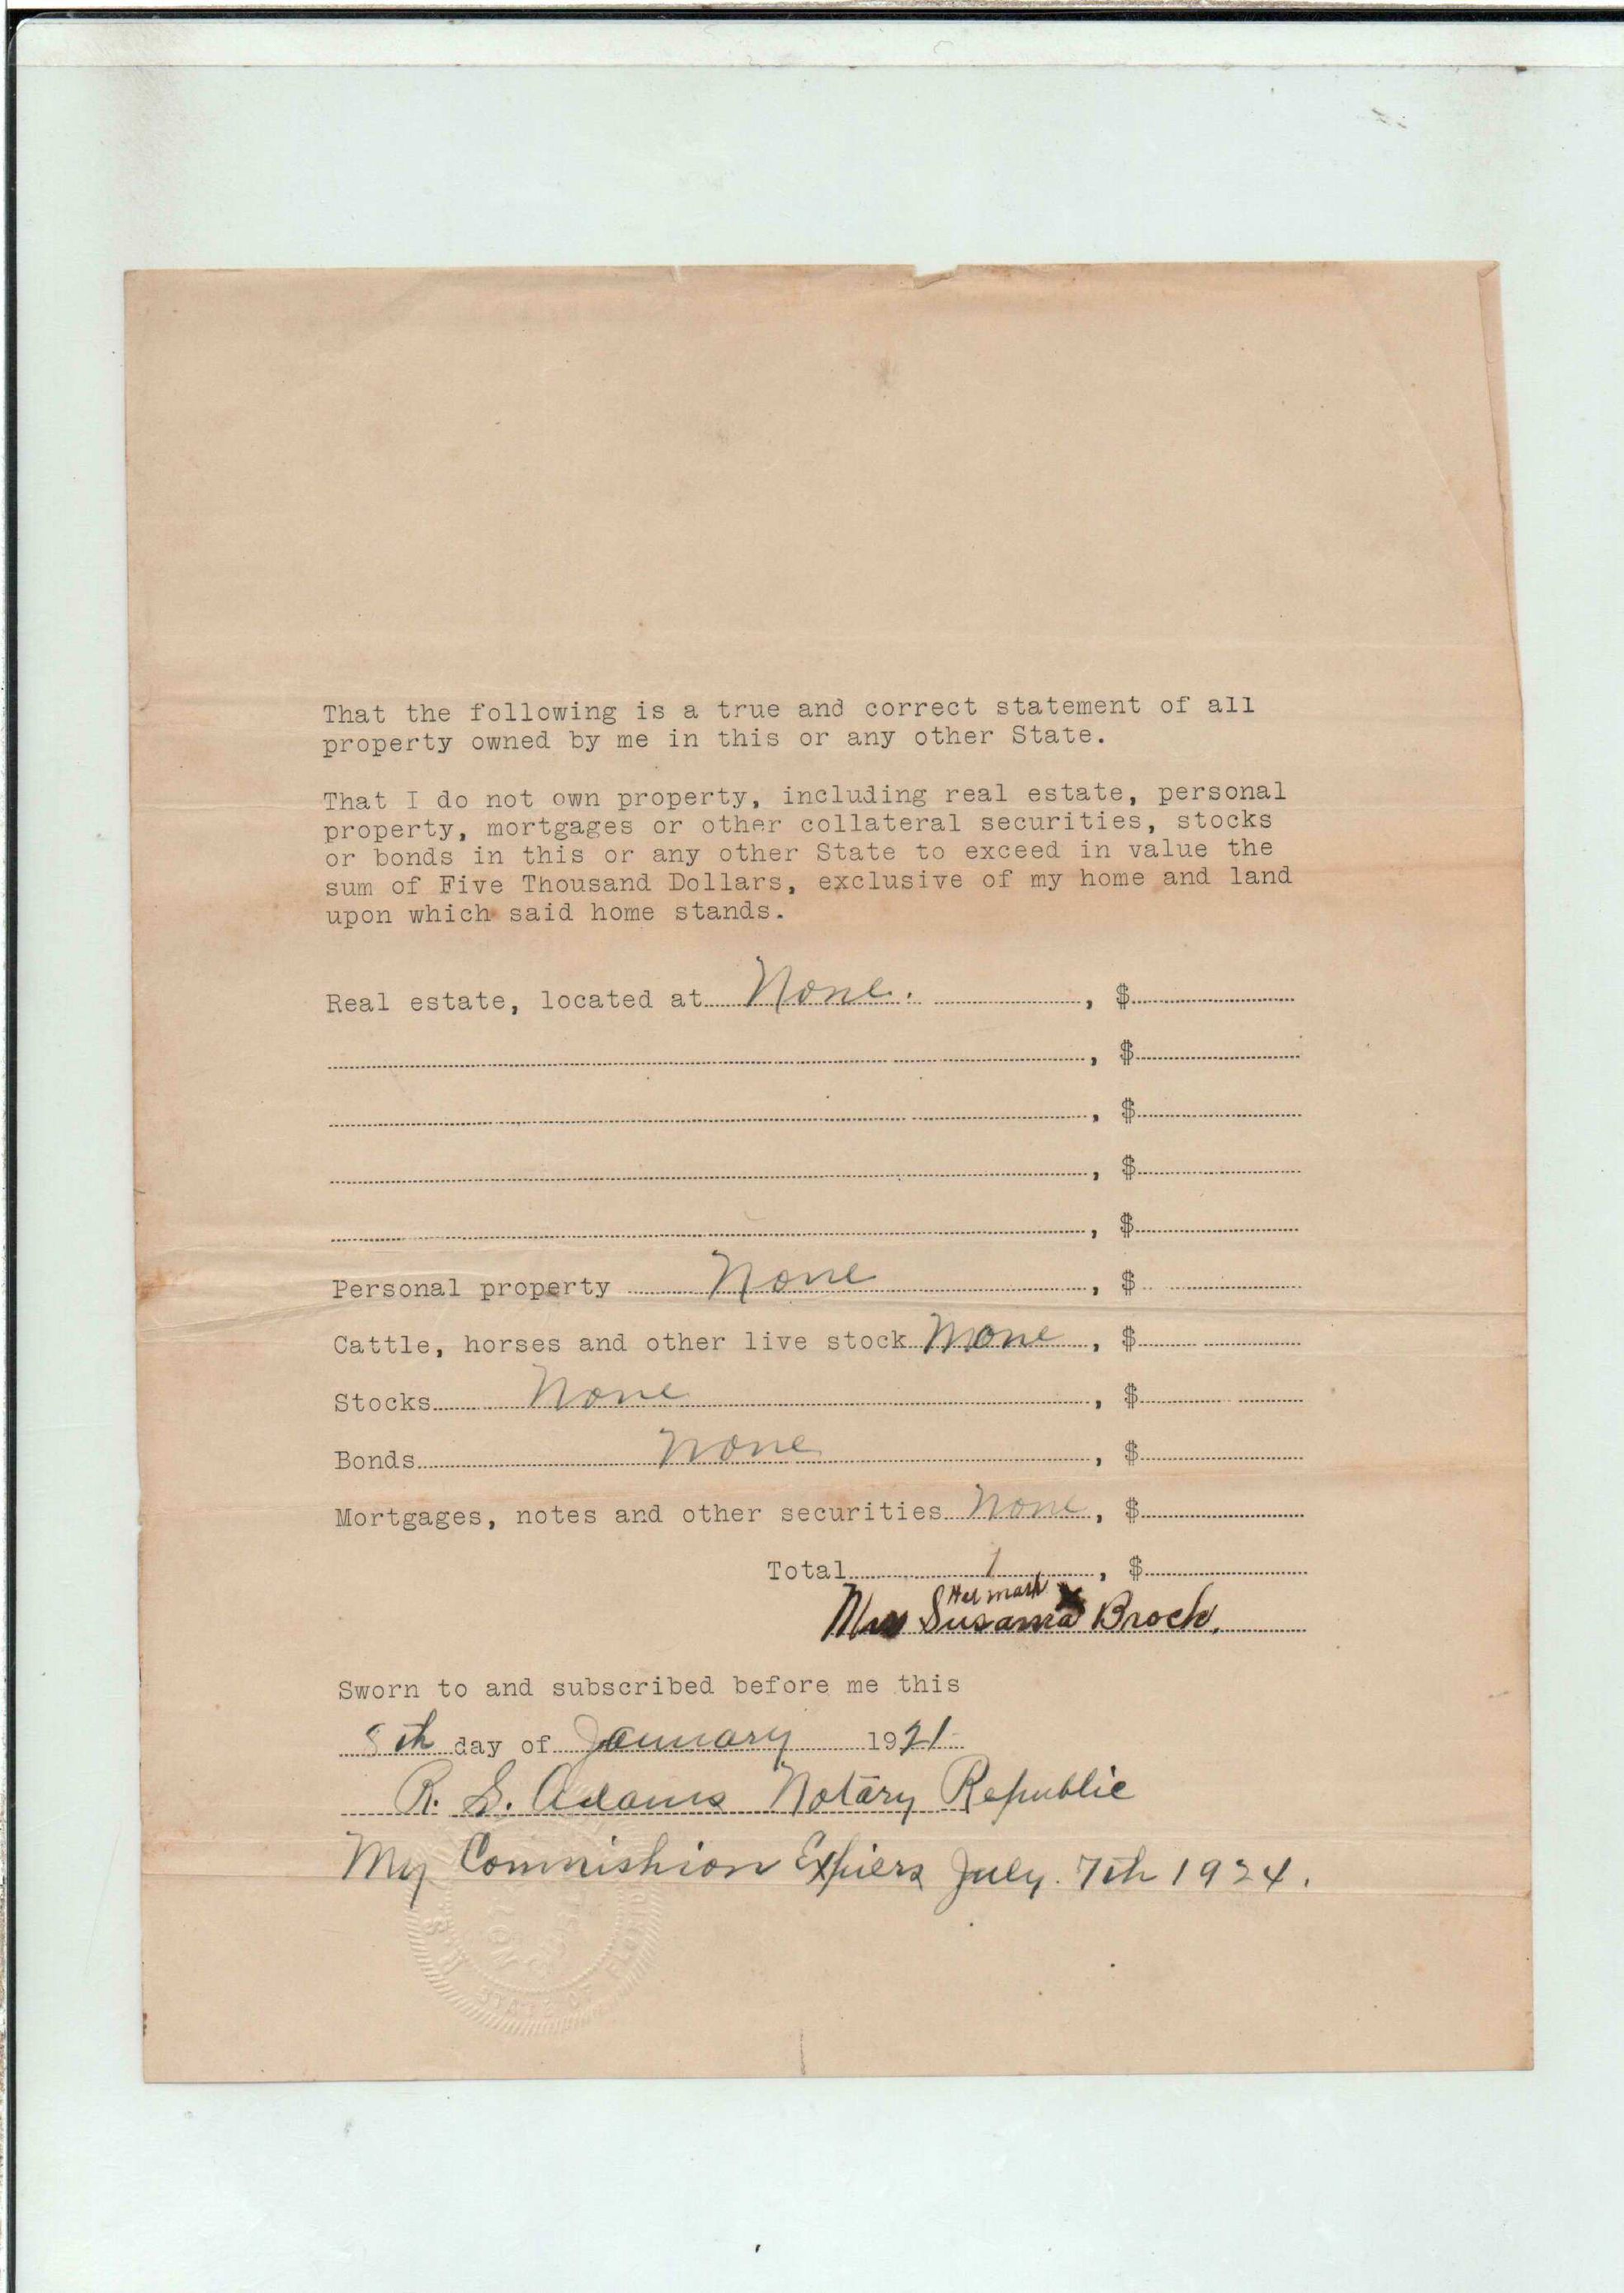 That the following is a true and correct statement of all
property owned by me in this or any other State.
That I do not own property, including real estate, personal
property, mortgages or other collateral securities, stocks
or bonds in this or any other State to exceed in value the
sum of Five Thousand Dollars, exclusive of my home and land
upon which said home stands.
Real estate, located at None. , $
, $
, $
, $
, $
Personal property None , $
Cattle, horses and other live stock None , $
Stocks None , $
Bonds None , $
Mortgages, notes and other securities None , $
Total , $
Her mark x
Mrs Susanna Brock.
Sworn to and subscribed before me this
8th day of January 1921
R. S. Adams Notary Republic
My Commishion Expiers July. 7th 1924.
STATE OF FLORIDA